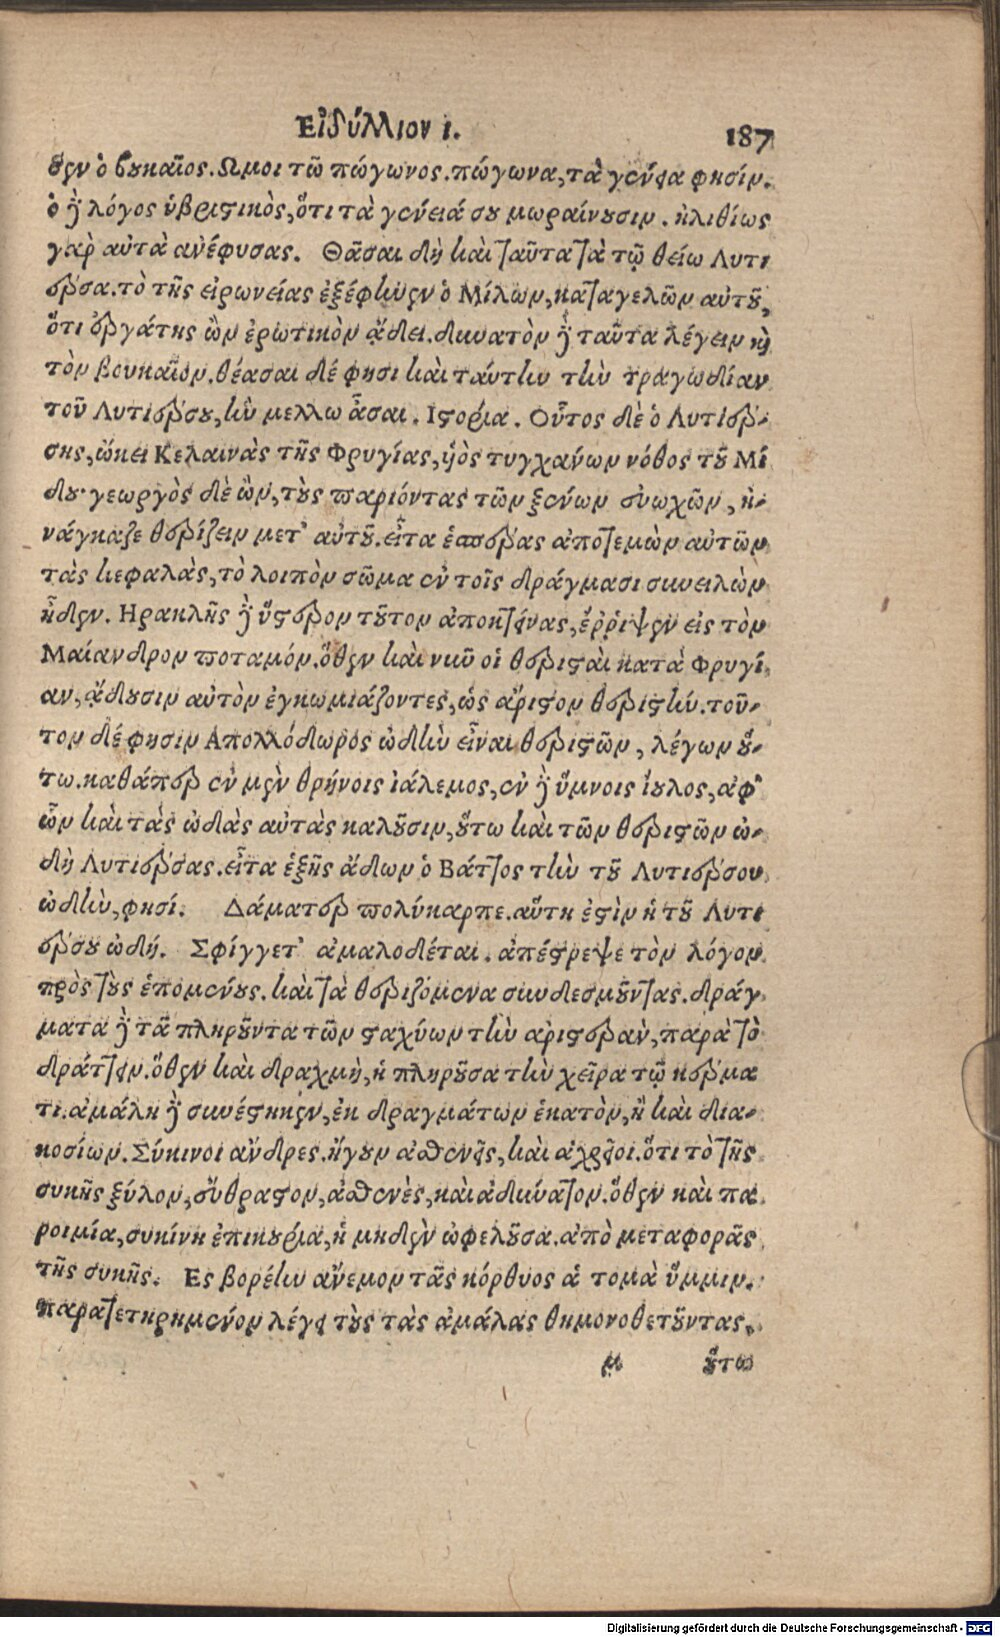 Εἰδύλλιον ι. 187
δεν ὁ βουκαῖος. Ωμοι τῶ πώγωνος. πώγωνα, τὰ γένεια φησίν.
ὁ δὲ λόγος ὑβριστικὸς, ὅτι τὰ γένειά σου μωραίνουσιν. ἠλιθίως
γὰρ αὐτὰ ἀνέφυσας. Θᾶσαι δὴ καὶ ταῦτα τὰ τῷ θείω Λυτι
έρσα. τὸ τῆς εἰρωνείας ἐξέφηνεν ὁ Μίλων, καταγελῶν αὐτοῦ,
ὅτι ἐργάτης ὢν ἐρωτικὸν ᾄδει. δυνατὸν δὲ ταῦτα λέγειν καὶ
τὸν βουκαῖον. θέασαι δέ φησι καὶ ταύτην τὴν τραγωδίαν
τοῦ Λυτιέρσου, ἣν μελλω ᾆσαι. Ιστορία. Οὗτος δὲ ὁ Λυτιέρ-
σης, ᾤκει Κελαινὰς τῆς Φρυγίας, ὑὸς τυγχάνων νόθος τοῦ Μί
δου· γεωργὸς δὲ ὢν, τοὺς παριόντας τῶν ξένων εὐωχῶν, ἠ-
νάγκαζε θερίζειν μετ' αὐτοῦ. εἶτα ἑσπέρας ἀποτεμὼν αὐτῶν
τὰς κεφαλὰς, τὸ λοιπὸν σῶμα ἐν τοῖς δράγμασι συνειλὼν
ᾖδεν. Ηρακλῆς δὲ ὕστερον τοῦτον ἀποκτείνας, ἔῤῥιψεν εἰς τὸν
Μαίανδρον ποταμόν. ὅθεν καὶ νῦν οἱ θερισταὶ κατὰ Φρυγί
αν, ᾄδουσιν αὐτὸν ἐγκωμιάζοντες, ὡς ἄριστον θεριστήν. τοῦ-
τον δέ φησιν Απολλόδωρος ὠδὴν εἶναι θεριστῶν, λέγων οὕ-
τω. καθάπερ ἐν μὲν θρήνοις ἰάλεμος, ἐν δὲ ὕμνοις ἴουλος, ἀφ'
ὧν καὶ τὰς ὠδὰς αὐτὰς καλοῦσιν, οὕτω καὶ τῶν θεριστῶν ὠ-
δὴ Λυτιέρσας. εἶτα ἑξῆς ᾄδων ὁ Βάττος τὴν τοῦ Λυτιέρσου
ὠδὴν, φησί. Δάματερ πολύκαρπε. αὕτη ἐστὶν ἡ τοῦ Λυτι
έρσου ὠδή. Σφίγγετ' ἀμαλοδέται. ἀπέστρεψε τὸν λόγον
πρὸς τοὺς ἑπομένους. καὶ τὰ θεριζόμενα συνδεσμοῦντας. δράγ
ματα δὲ τὰ πληροῦντα τῶν σταχύων τὴν ἀριστερὰν, παρὰ τὸ
δράττειν. ὅθεν καὶ δραχμὴ, ἡ πληροῦσα τὴν χεῖρα τῷ κέρμα
τι. ἀμάλη δὲ συνέστηκεν, ἐκ δραγμάτων ἑκατὸν, ἢ καὶ δια-
κοσίων. Σύκινοι ἄνδρες. ἤγουν ἀσθενεῖς, καὶ ἀχρεῖοι. ὅτι τὸ τῆς
συκῆς ξύλον, εὔθραστον, ἀσθενὲς, καὶ ἀδύνατον. ὅθεν καὶ πα
ροιμία, συκίνη ἐπικουρία, ἡ μηδὲν ὠφελοῦσα. ἀπὸ μεταφορᾶς
τῆς συκῆς. Ες βορέην ἄνεμον τᾶς κόρθυος ἁ τομὰ ὔμμιν.
παρατετηρημένον λέγει τοὺς τὰς ἀμάλας θημονοθετοῦντας,
μ οὕτω
Digitalisierung gefördert durch die Deutsche Forschungsgemeinschaft - DFG